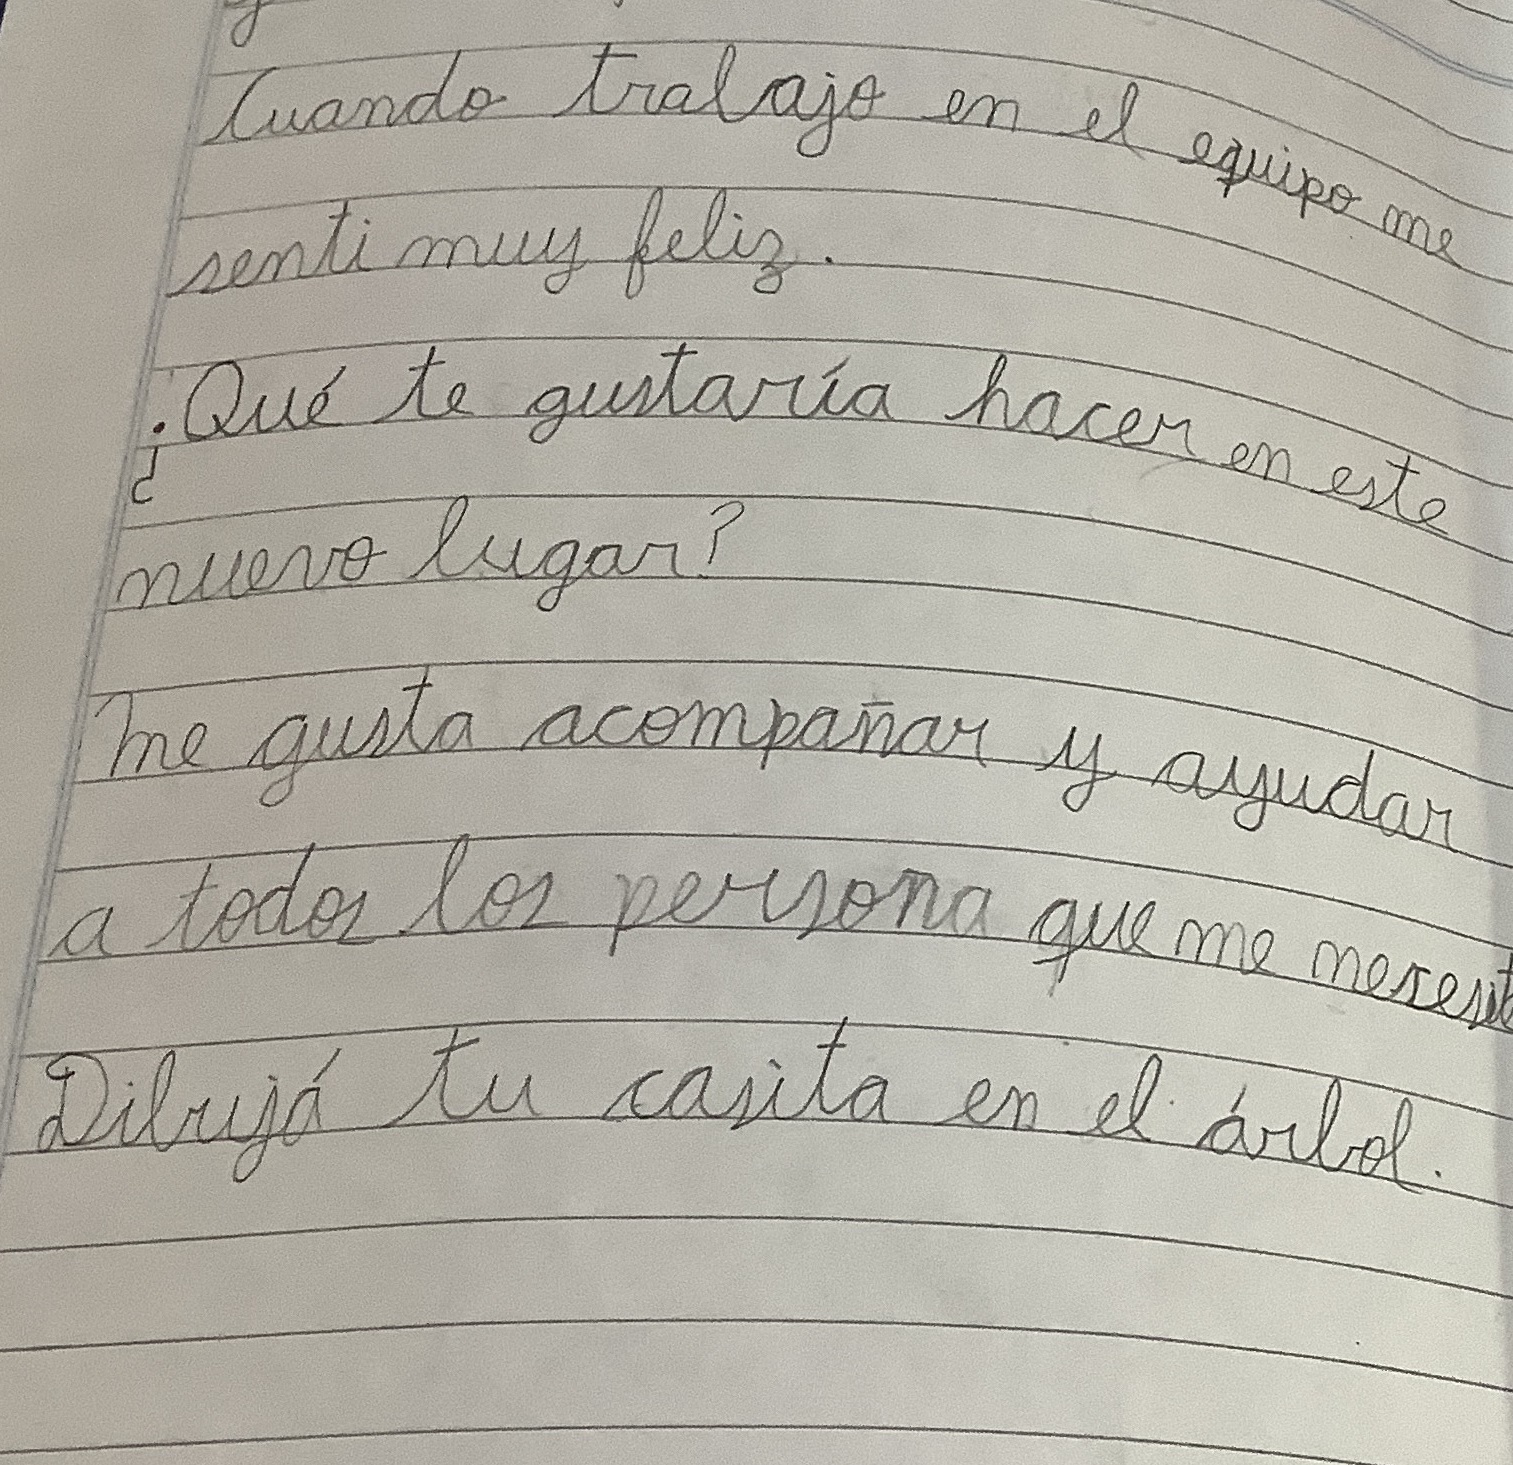 Cuando trabajo en el equipo me
senti muy feliz.
.¿Qué te gustaría hacer en este
nuevo lugar?
Me gusta acompañar y ayudar
a todos los persona que me
Dibujá tu casita en el árbol.